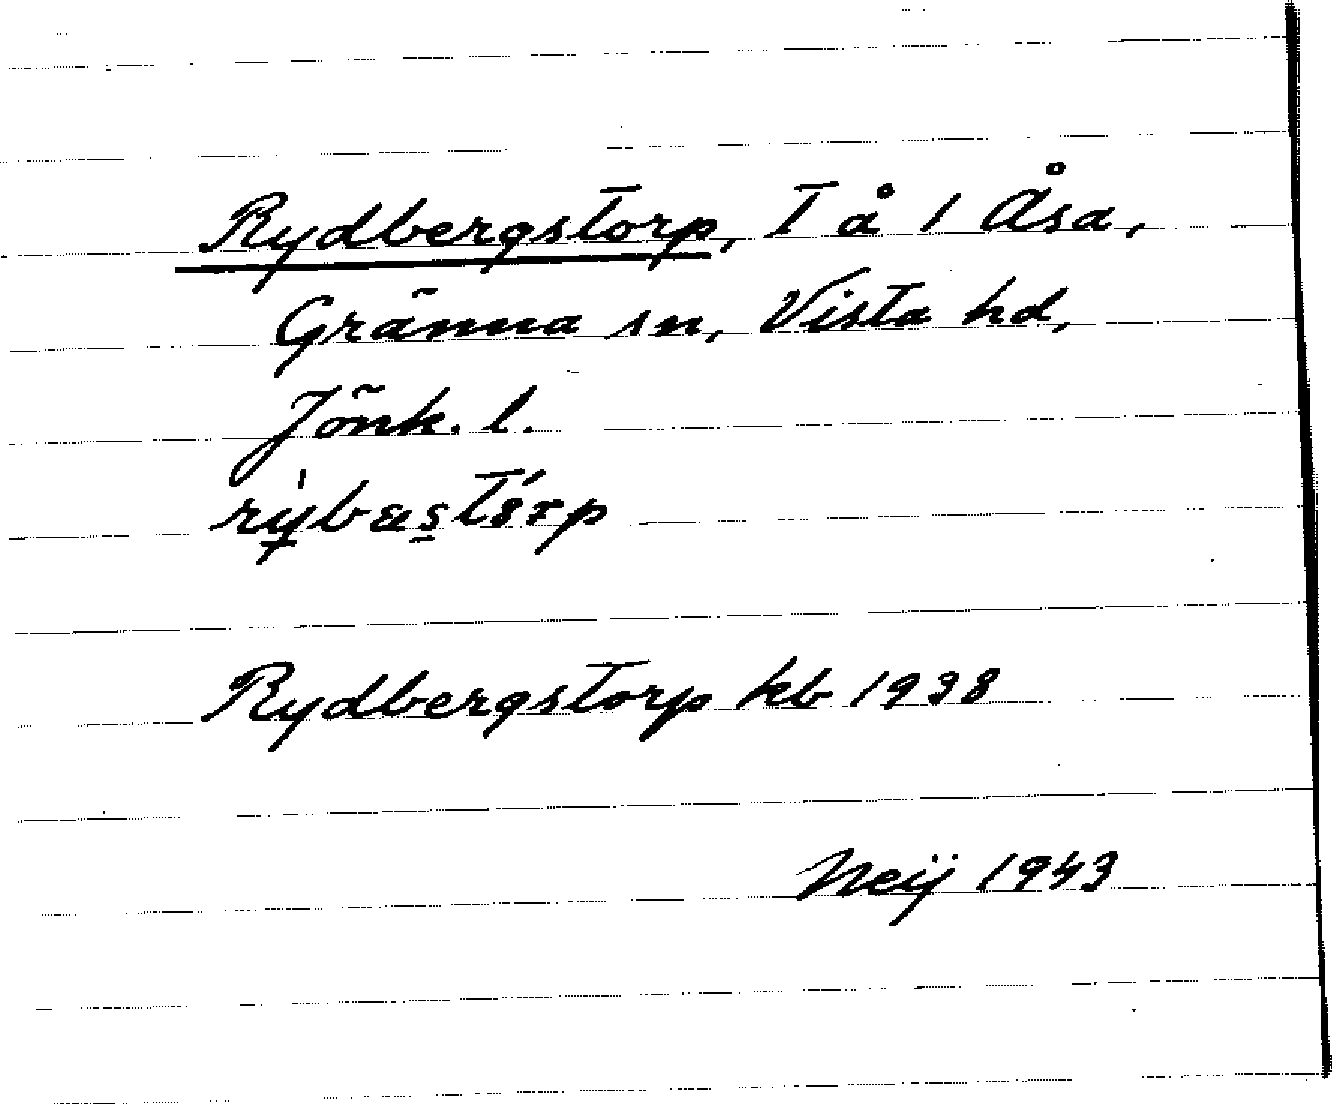 Rydbergstorp, T å 1 Åsa,
Gränna sn, Vista hd,
Jönk. l.
Rydbergstorp kb 1938
Neij 1943